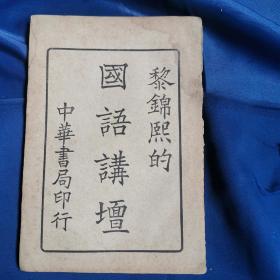 黎錦熙的
國語講壇
中華書局印行